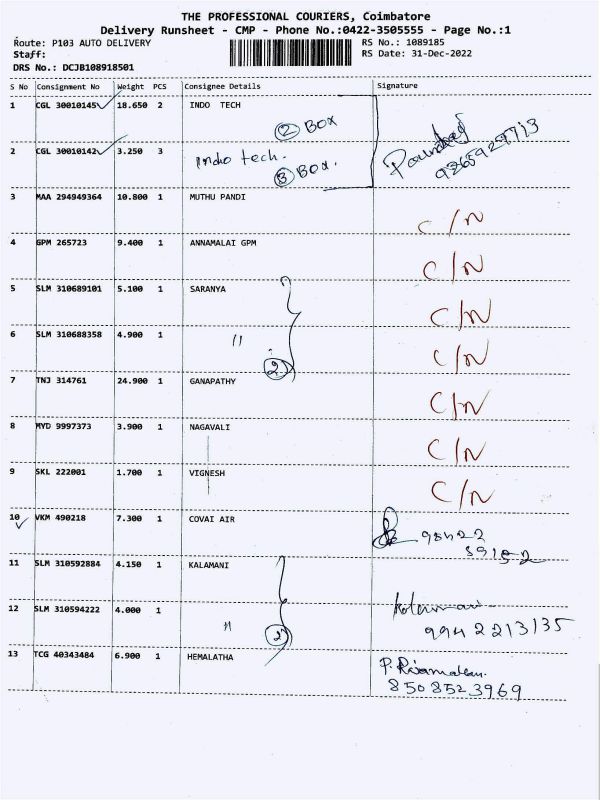 THE PROFESSIONAL COURIERS, Coimbatore
Delivery Runsheet - CMP - Phone No.:0422-3505555 - Page No.:1
Route: P103 AUTO DELIVERY RS No.: 1089185
Staff: RS Date: 31-Dec-2022
DRS No.: DCJB108918501
S No Consignment No Weight PCS Consignee Details Signature
1 CGL 30010145 18.650 2 INDO TECH
2 BOX
2 CGL 30010142 3.250 3 Indo tech.
3 BOX.
9365927713
3 MAA 294949364 10.800 1 MUTHU PANDI
C/N
4 GPM 265723 9.400 1 ANNAMALAI GPM
C/N
5 SLM 310689101 5.100 1 SARANYA
C/N
6 SLM 310688358 4.900 1 "
2 C/N
7 TNJ 314761 24.900 1 GANAPATHY
C/N
8 MYD 9997373 3.900 1 NAGAVALI
C/N
9 SKL 222001 1.700 1 VIGNESH
C/N
10 VKM 490218 7.300 1 COVAI AIR
98422
59152
11 SLM 310592884 4.150 1 KALAMANI
12 SLM 310594222 4.000 1
" 2 9942213135
13 TCG 40343484 6.900 1 HEMALATHA
8508523969